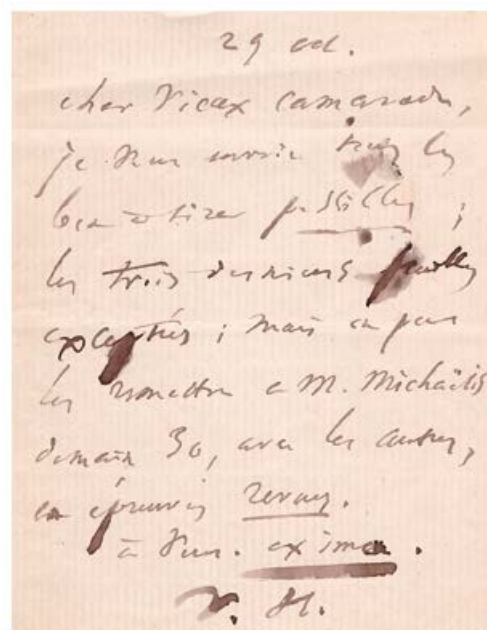 29 oct.
cher vieux camarade,
je vous envoie tous les
bon à tirer possibles ;
les trois derniers feuilles
exceptés ; mais on peut
les remettre à M. Michaëlis
demain 30, avec les autres,
en épreuves revues.
à vous. ex
V. H.